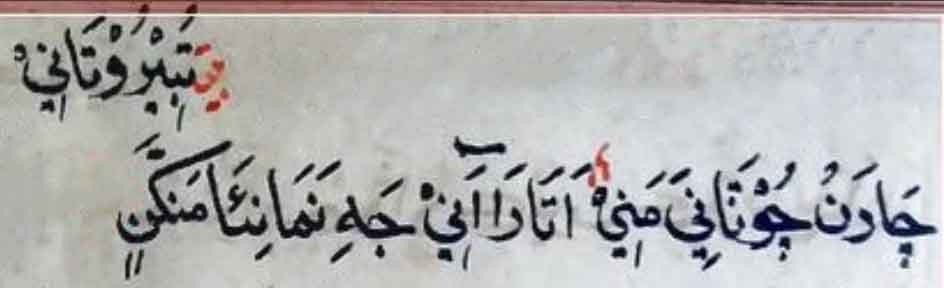 تَبِيْرُوْتَانِيْ
جَادَنُ جُوْتَانِيَ مَنِيْ اَتَارَااَنِيْ جَهِ نَمَانِئَا مَنكَنٍ